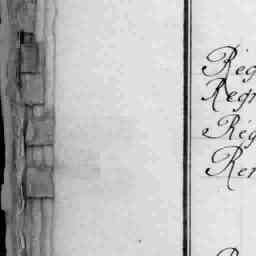 Reg
Regn
Reg
Ren